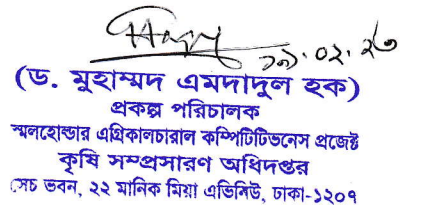 ২৯.০২.২৩
(ড. মুহাম্মদ এমদাদুল হক)
প্রকল্প পরিচালক
স্মলহোল্ডার এগ্রিকালচারাল কম্পিটিটিভনেস প্রজেক্ট
কৃষি সম্প্রসারণ অধিদপ্তর
সেচ ভবন, ২২ মানিক মিয়া এভিনিউ, ঢাকা-১২০৭